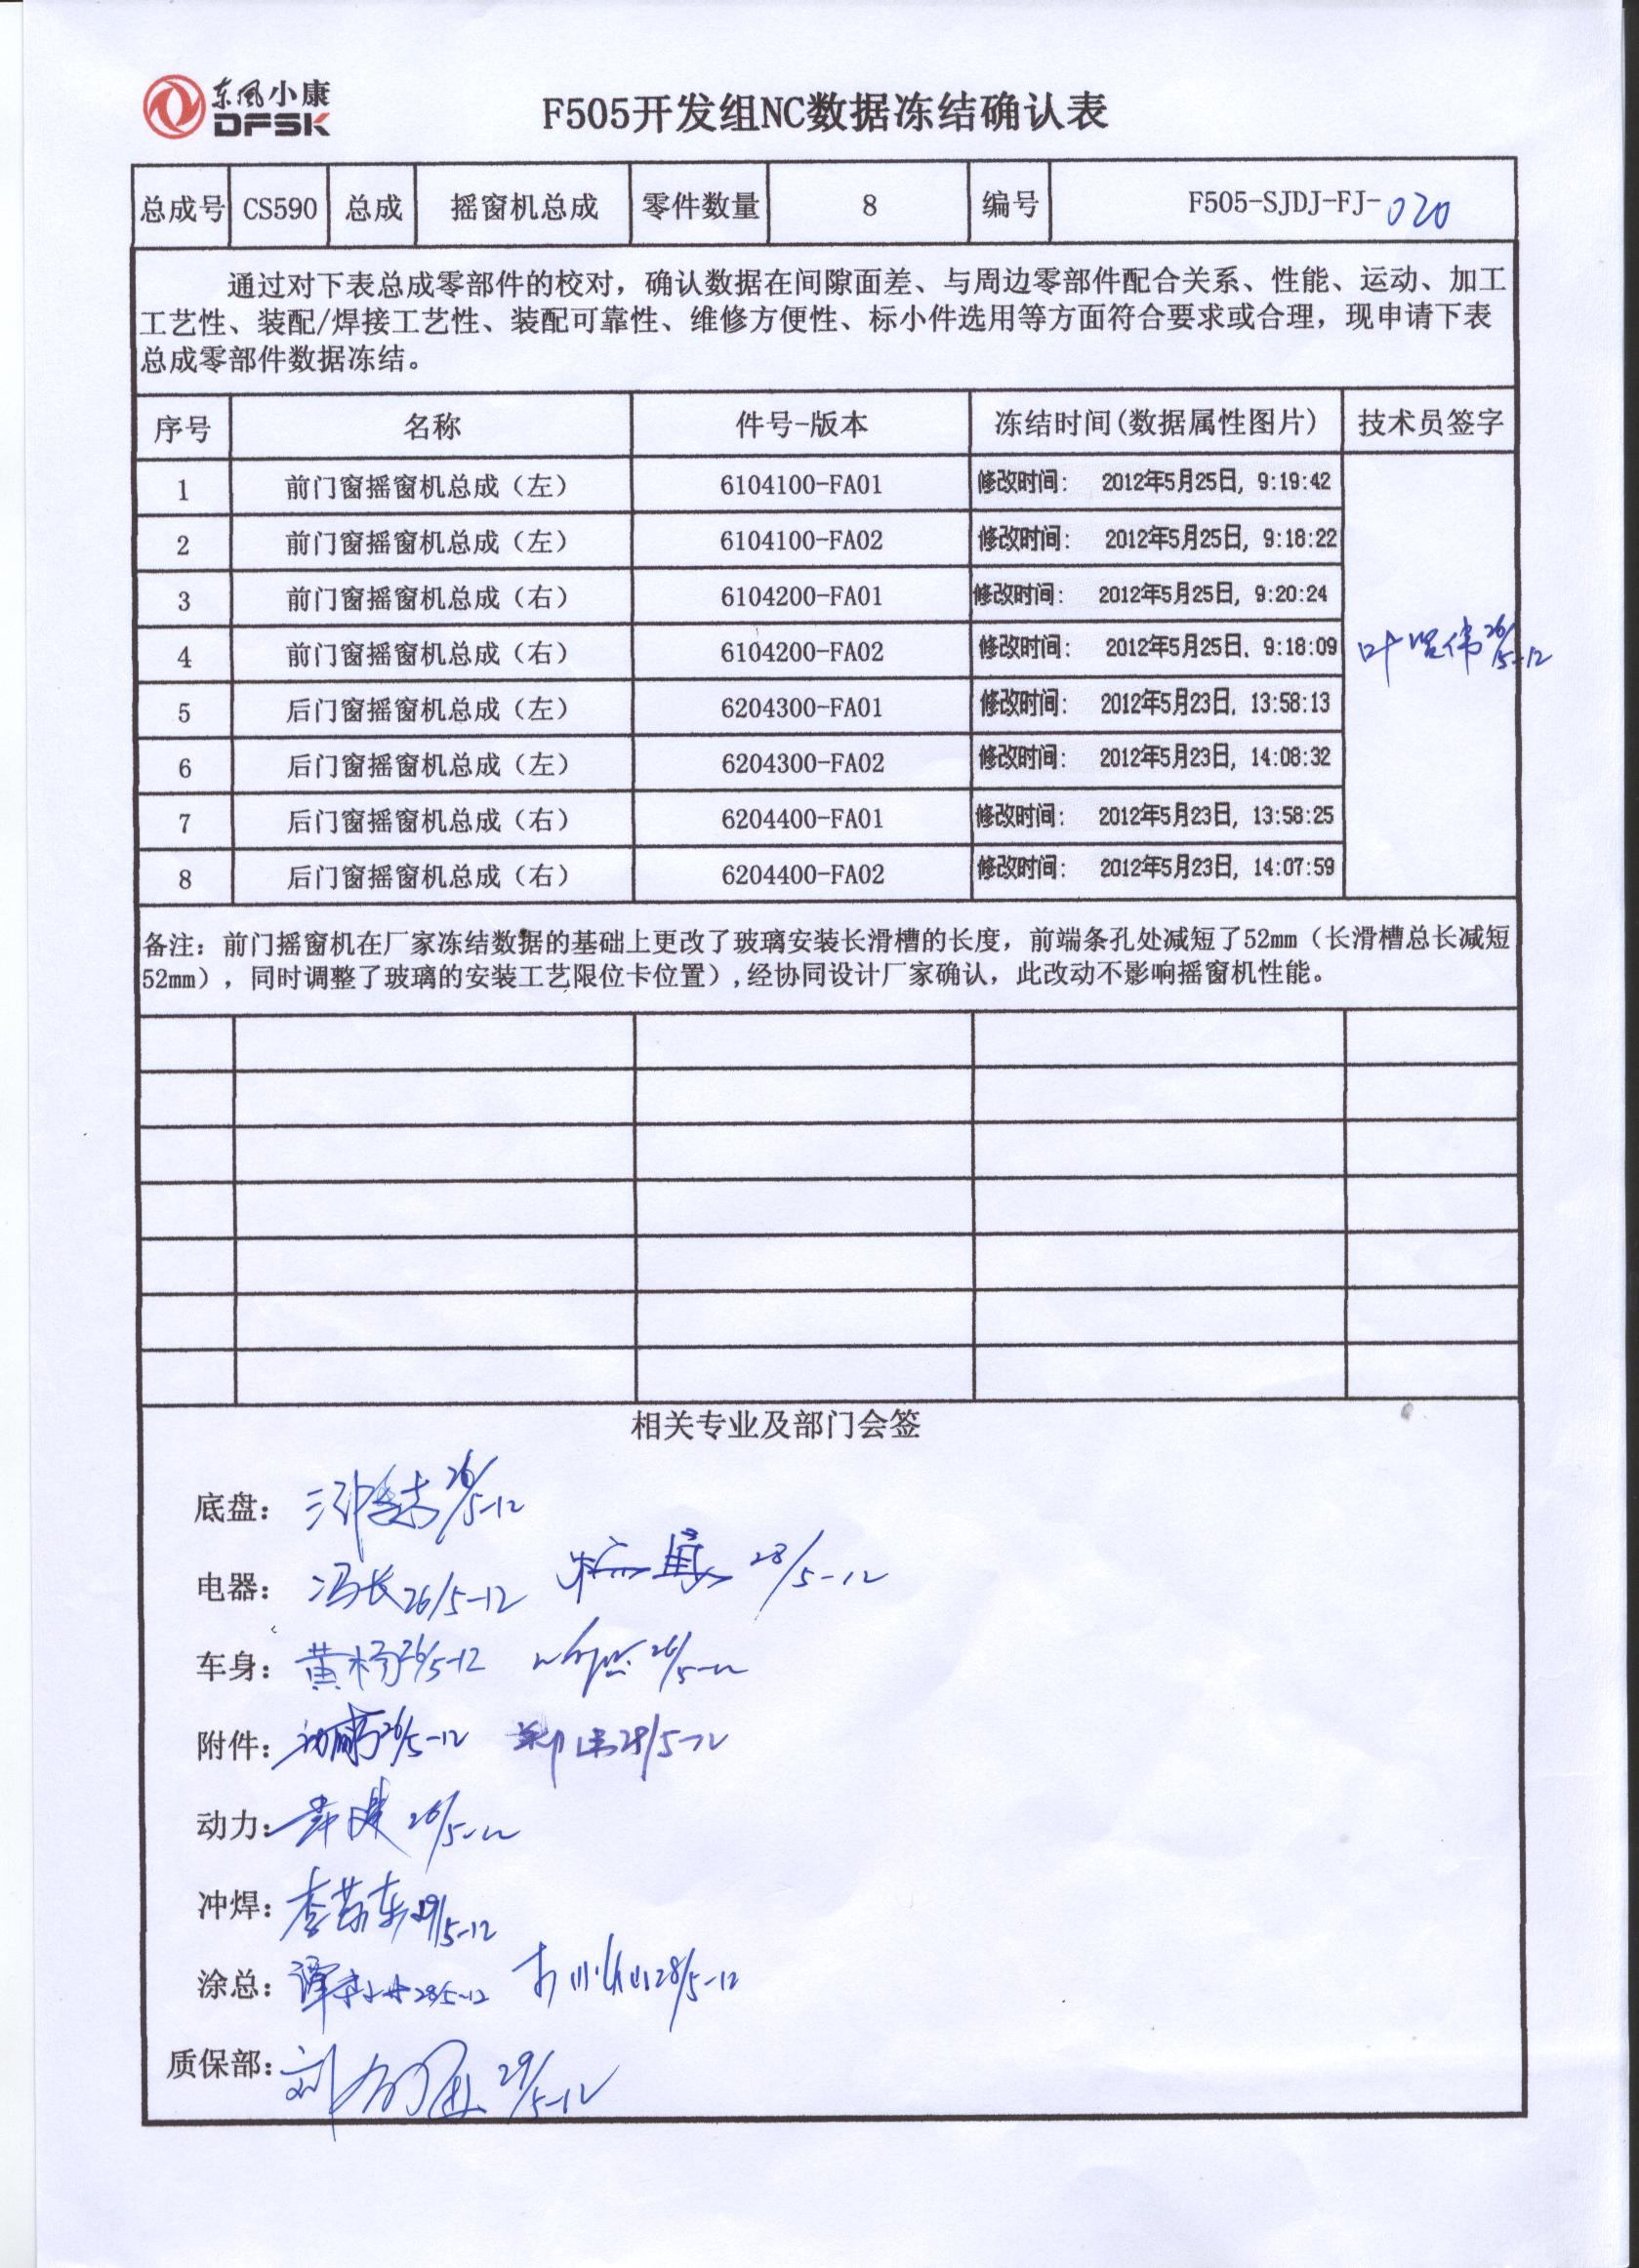 东风小康
DFSK
F505开发组NC数据冻结确认表
总成号 CS590 总成 摇窗机总成 零件数量 8 编号 F505-SJDJ-FJ-020
通过对下表总成零部件的校对，确认数据在间隙面差、与周边零部件配合关系、性能、运动、加工
工艺性、装配/焊接工艺性、装配可靠性、维修方便性、标小件选用等方面符合要求或合理，现申请下表
总成零部件数据冻结。
序号 名称 件号-版本 冻结时间(数据属性图片) 技术员签字
1 前门窗摇窗机总成（左） 6104100-FA01 修改时间： 2012年5月25日, 9:19:42
2 前门窗摇窗机总成（左） 6104100-FA02 修改时间： 2012年5月25日, 9:18:22
3 前门窗摇窗机总成（右） 6104200-FA01 修改时间： 2012年5月25日, 9:20:24
4 前门窗摇窗机总成（右） 6104200-FA02 修改时间： 2012年5月25日, 9:18:09 26/5-12
5 后门窗摇窗机总成（左） 6204300-FA01 修改时间： 2012年5月23日, 13:58:13
6 后门窗摇窗机总成（左） 6204300-FA02 修改时间： 2012年5月23日, 14:08:32
7 后门窗摇窗机总成（右） 6204400-FA01 修改时间： 2012年5月23日, 13:58:25
8 后门窗摇窗机总成（右） 6204400-FA02 修改时间： 2012年5月23日, 14:07:59
备注：前门摇窗机在厂家冻结数据的基础上更改了玻璃安装长滑槽的长度，前端条孔处减短了52mm（长滑槽总长减短
52mm），同时调整了玻璃的安装工艺限位卡位置）,经协同设计厂家确认，此改动不影响摇窗机性能。
相关专业及部门会签
底盘： 26/5-12
电器： 冯长 26/5-12 28/5-12
车身： 黄杨 26/5-12 26/5-12
附件： 26/5-12 28/5-12
动力： 26/5-12
冲焊： 李荣东 29/5-12
涂总： 28/5-12 28/5-12
质保部： 29/5-12